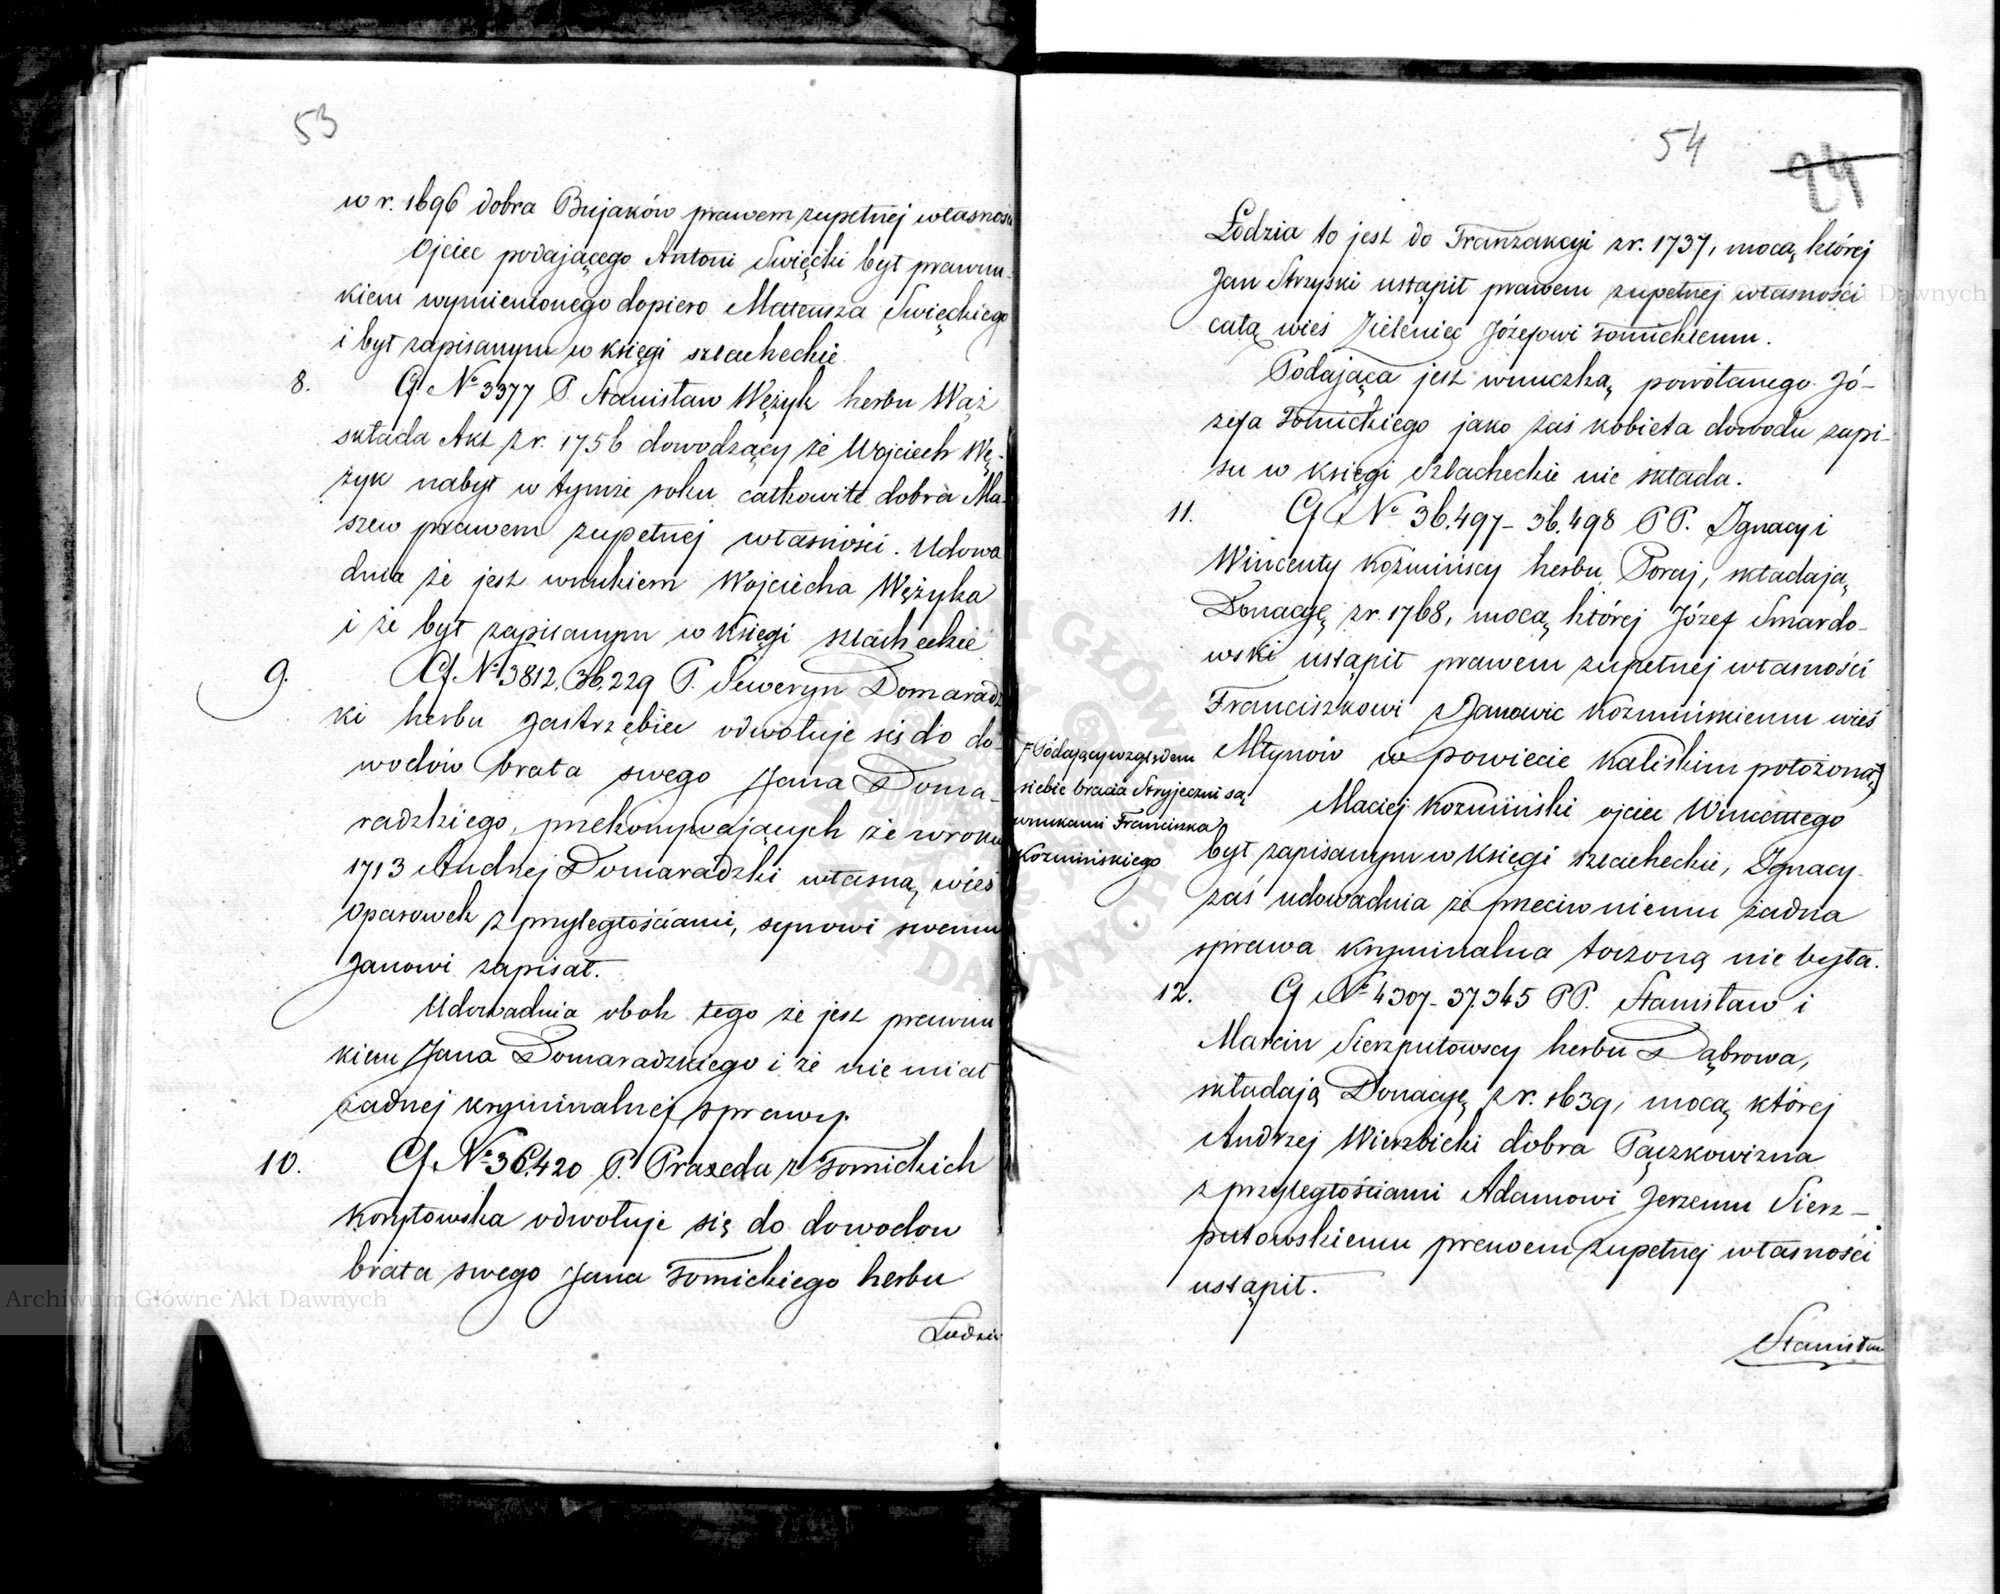 53
w r. 1696 dobra Bujaków prawem zupełnej własnośc
Ojciec podającego Antoni Swięcki był prawnu-
kiem wymienionego dopiero Mateusza Swięckiego
i był zapisanym w księgi szlacheckie.
8. G N° 3377 P. Stanisław Wężyk herbu Wąż
składa Akt z r. 1756 dowodzący że Wojciech Wę-
żyk nabył w tymże roku całkowite dobra Ma
szew prawem zupełnej własności. Udowa
dnia że jest wnukiem Wojciecha Wężyka
i że był zapisanym w księgi szlacheckie
9. G N° 3812, 36,229 P. Seweryn Domaradz
ki herbu Jastrzębiec odwołuje się do do-
wodów brata swego Jana Doma-
radzkiego, przekonywających że w roku
1713 Andrzej Domaradzki własną wieś
Oparowek z przyległościami, synowi swemu
Janowi zapisał.
Udowadnia obok tego że jest prawnu
kiem Jana Domaradzkiego i że nie miał
żadnej kryminalnej sprawy.
10. G N° 36,420 P. Praxeda z Tomickich
Korytowska odwołuje się do dowodow
brata swego Jana Tomickiego herbu
Łodzia
54
24
Łodzia to jest do Tranzakcyi z r. 1737, mocą której
Jan Strzyski ustąpił prawem zupełnej własności
całą wieś Zieleniec Józefowi Tomickiemu.
Podająca jest wnuczką powołanego Jó-
zefa Tomickiego jako zaś kobieta dowodu zapi-
su w księgi Szlacheckie nie składa.
11. G N° 36.497 - 36.498 PP. Ignacy i
Wincenty Koźmińscy herbu Poraj, składają
Donacyę z r. 1768, mocą której Józef Smardo-
wski ustąpił prawem zupełnej własności
Franciszkowi Janowic Kozminskiemu wieś
Młynów w powiecie Kaliskim położoną
F Podający względem
siebie bracia Stryjeczni są
wnukami Franciszka
Kozminskiego
Maciej Kozminski ojciec Wincentego
był zapisanym w księgi szlacheckie, Ignacy
zaś udowadnia że przeciw niemu żadna
sprawa kryminalna toczoną nie była.
12. G N° 4307 - 37.345 PP. Stanisław i
Marcin Sierzputowscy herbu Dąbrowa,
składają Donacyę z r. 1639, mocą której
Andrzej Wierzbicki dobra Pączkowizna
z przyległościami Adamowi Jerzemu Sierz-
putowskiemu prawem zupełnej własności
ustąpił.
Stanisław
Archiwum Główne Akt Dawnych